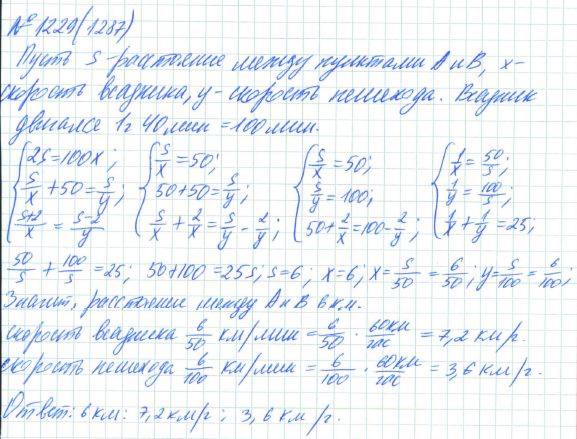 № 1229(1287)
Пусть S - расстояние между пунктами А и В, x -
скорость всадника, y - скорость пешехода. Всадник
двигался 1ч 40мин = 100мин.
{2S=100x; {S/x=50; {S/x=50; {1/x=50/S;
S/x+50=S/y; 50+50=S/y; S/y=100; 1/y=100/S;
S+2/x=S-2/y S/x+2/x=S/y-2/y; 50+2/x=100-2/y; 1/x+1/y=25;
50/S+100/S=25; 50+100=25S; S=6; x=6; x=S/50=6/50; y=S/100=6/100;
Значит, расстояние между А и В 6 км.
скорость всадника 6/50 км/мин = 6/50 · 60км/час = 7,2 км/ч.
скорость пешехода 6/100 км/мин = 6/100 · 60км/час = 3,6 км/ч.
Ответ: 6 км: 7,2км/ч; 3,6 км/ч.